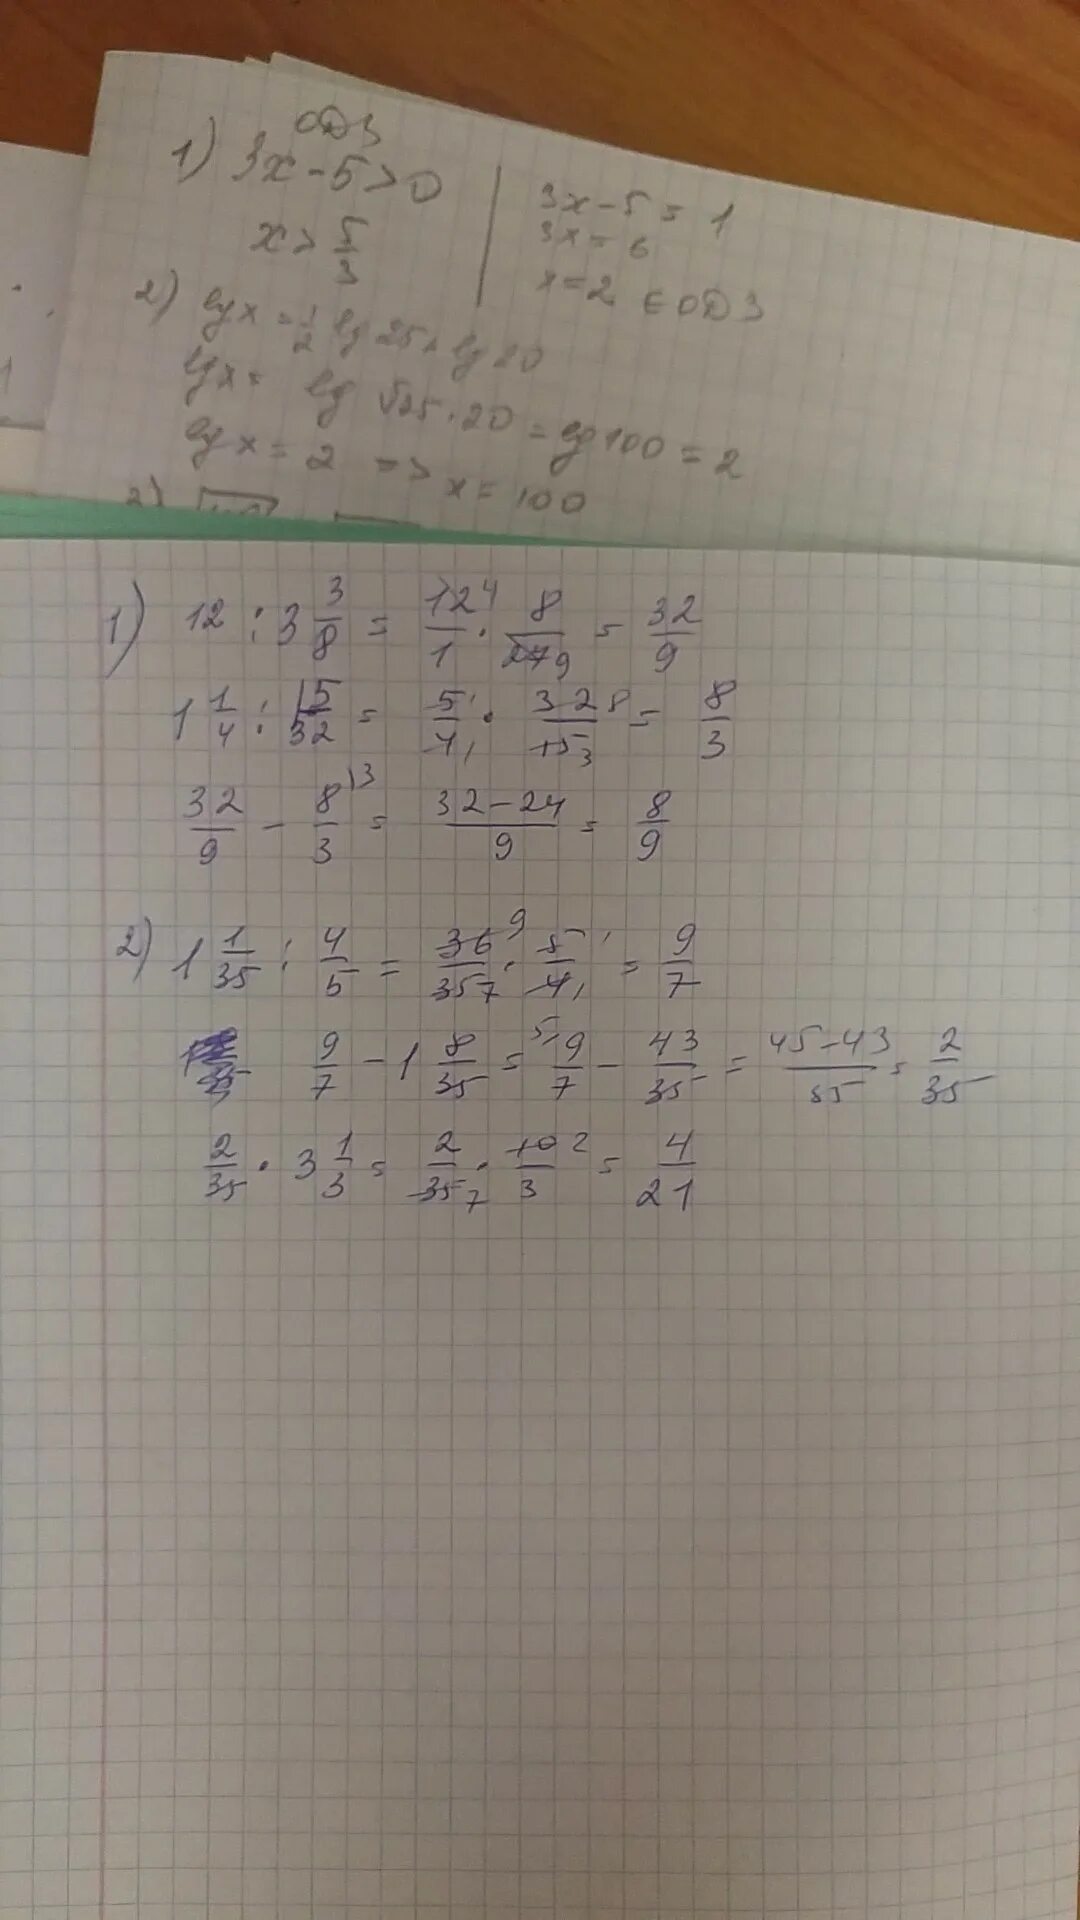 ОДЗ
1) 3x - 5 > 0
x > 5/3
3x - 5 = 1
3x = 6
x = 2 ∈ ОДЗ
2) lg x = 1/2 lg 25 + lg 20
lg x = lg √25 · 20 = lg 100 = 2
lg x = 2 => x = 100
1) 12 : 3 3/8 = 12 4/1 · 8/27 9 = 32/9
1 1/4 : 15/32 = 5 1/4 1 · 32 8/15 3 = 8/3
32/9 - 8/3 \3 = 32-24/9 = 8/9
2) 1 1/35 : 4/5 = 36 9/35 7 · 5 1/4 1 = 9/7
9/7 - 1 8/35 = 5\ 9/7 - 43/35 = 45-43/35 = 2/35
2/35 · 3 1/3 = 2/35 7 · 10 2/3 = 4/21